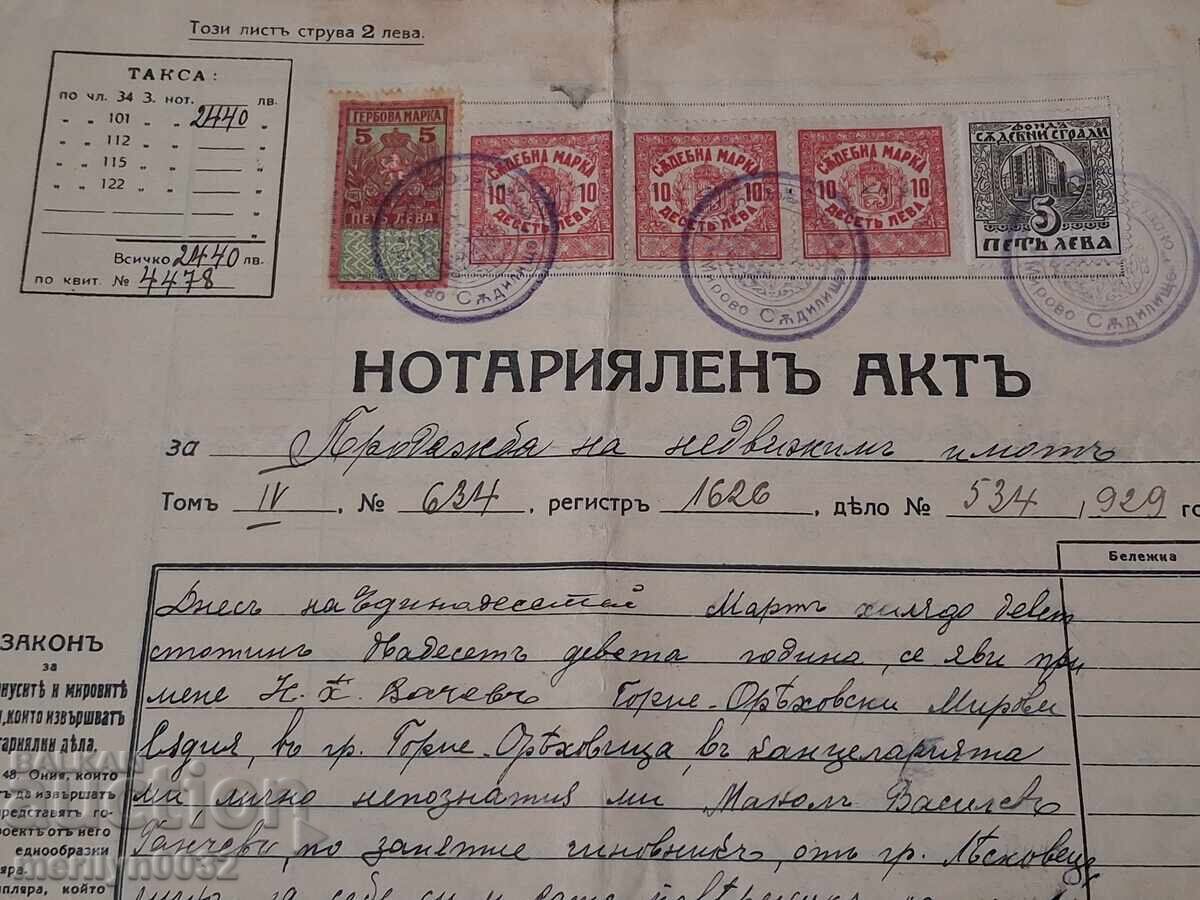 Този листъ струва 2 лева.
ТАКСА:
по чл. 34 З. нот. 2440 лв.
„ „ 101 „ „ „
„ „ 112 „ „ „
„ „ 115 „ „ „
„ „ 122 „ „ „
Всичко 2440 лв.
по квит. № 4478
ГЕРБОВА МАРКА
5 5
ПЕТЬ ЛЕВА
СѪДЕБНА МАРКА
10 10
ДЕСЕТЬ ЛЕВА
СѪДЕБНА МАРКА
10 10
ДЕСЕТЬ ЛЕВА
СѪДЕБНА МАРКА
10 10
ДЕСЕТЬ ЛЕВА
ФОНДЪ
СѪДЕБНИ СГРАДИ
5
ПЕТЬ ЛЕВА
Мирово Сѫдилище
Мирово Сѫдилище
НОТАРИЯЛЕНЪ АКТЪ
за Продажба на недвижимъ имотъ
Томъ IV, № 634, регистръ 1626, дѣло № 534, 929 го
Бележка
Днесъ на Единадесетий Мартъ хилядо девет
стотинъ двадесетъ девета година, се яви при
мене Н. Х. Вачевъ Горне-Орѣховски Мирови
сѫдия, въ гр. Горне-Орѣховица, въ канцеларията
ми лично непознатия ми Манолъ Василевъ
Ганчевъ, по занятие чиновникъ, отъ гр. Лѣсковецъ,
за себе си и
ЗАКОНЪ
за
усите и мировите
, които извършватъ
тариялни дѣла.
48 Ония, които
тъ да извършатъ
представятъ го-
роектъ отъ него
еднообразни
ляра.
пляра, който
БАЛКАН
auction
merilyn0032